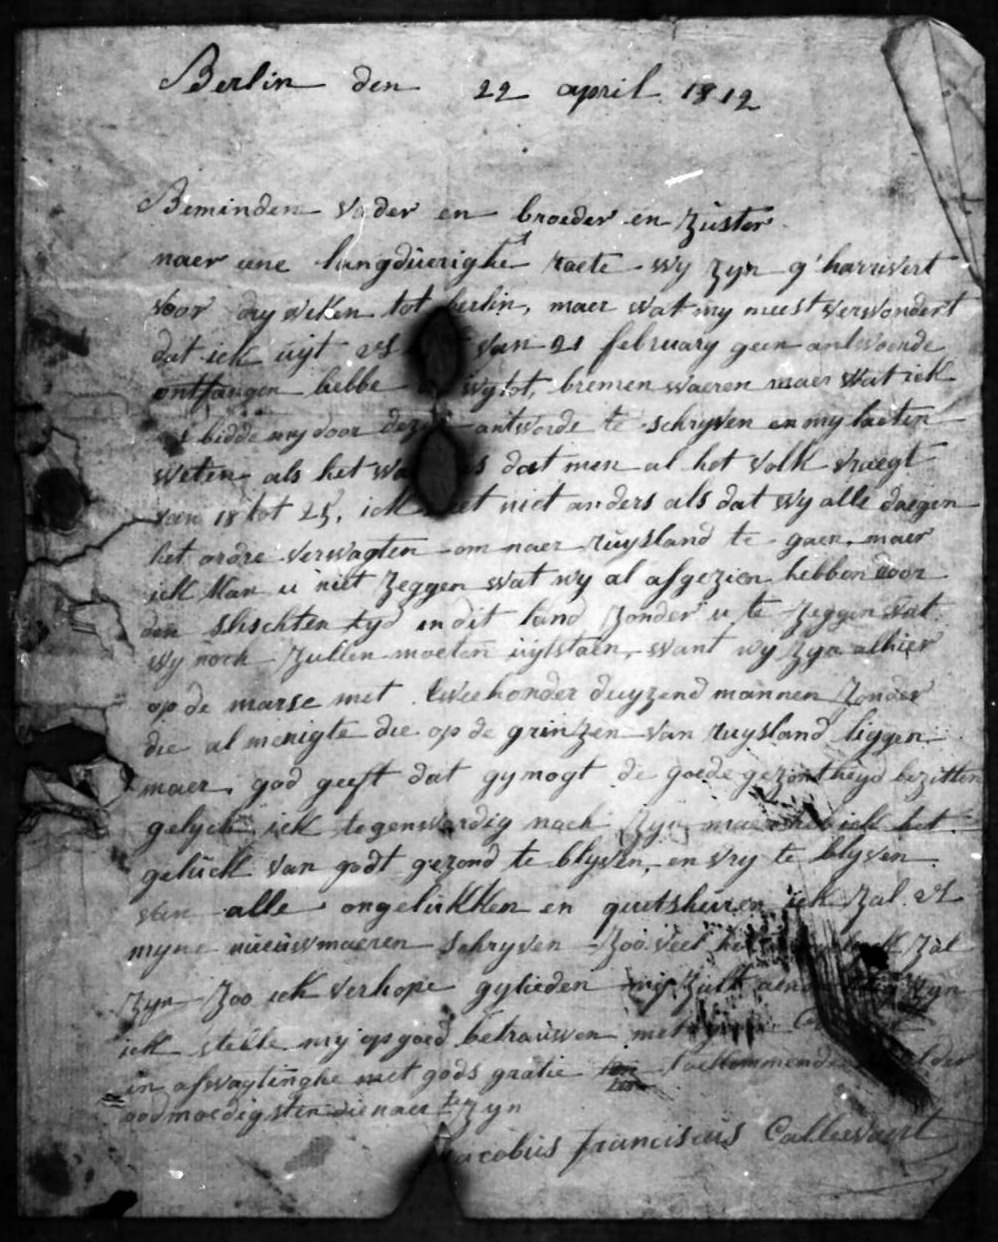 Berlin den 22 april 1812
Beminden vader en broeder en züster
naer eene langdüerighe raete wy zyn g'harrivert
voor dry weken tot berlin, maer wat my meest verwondert
dat ick üyt van 21 february geen antwoorde
ontfangen hebbe wy tot, bremen waeren maer wat ick
bidde my door antworde te schryven en my laeten
weten als het dat men al het volk vraegt
van 18 tot 25, ick niet anders als dat wy alle daegen
het ordre verwagten om naer ruysland te gaen, maer
ick kan u niet zeggen wat wy al afgezien hebben door
den slischten tyd in dit land zonder u te zeggen wat
wy noch zullen moeten üytstaen, want wy zyn alhier
op de marse met twee honder duyzend mannen zonder
die al menigte die op de grinzen van ruysland liggen
maer god geeft dat gy mogt de goede gezontheyd bezitten
gelyck ick tegenswordig noch zyn ick het
gelück van godt gezond te blyven, en vry te blyven
van alle ongelükken en quetshüren ick zal
myne nieüwmaeren schryven zoo veel zal
zyn zoo ick verhope gylieden zyn
ick stelle my op goed betraüwen met
in afwagtinghe met gods gratie toekommende
oodmoedigsten dienaer te zyn
Jacobüs franciscüs Callewaert